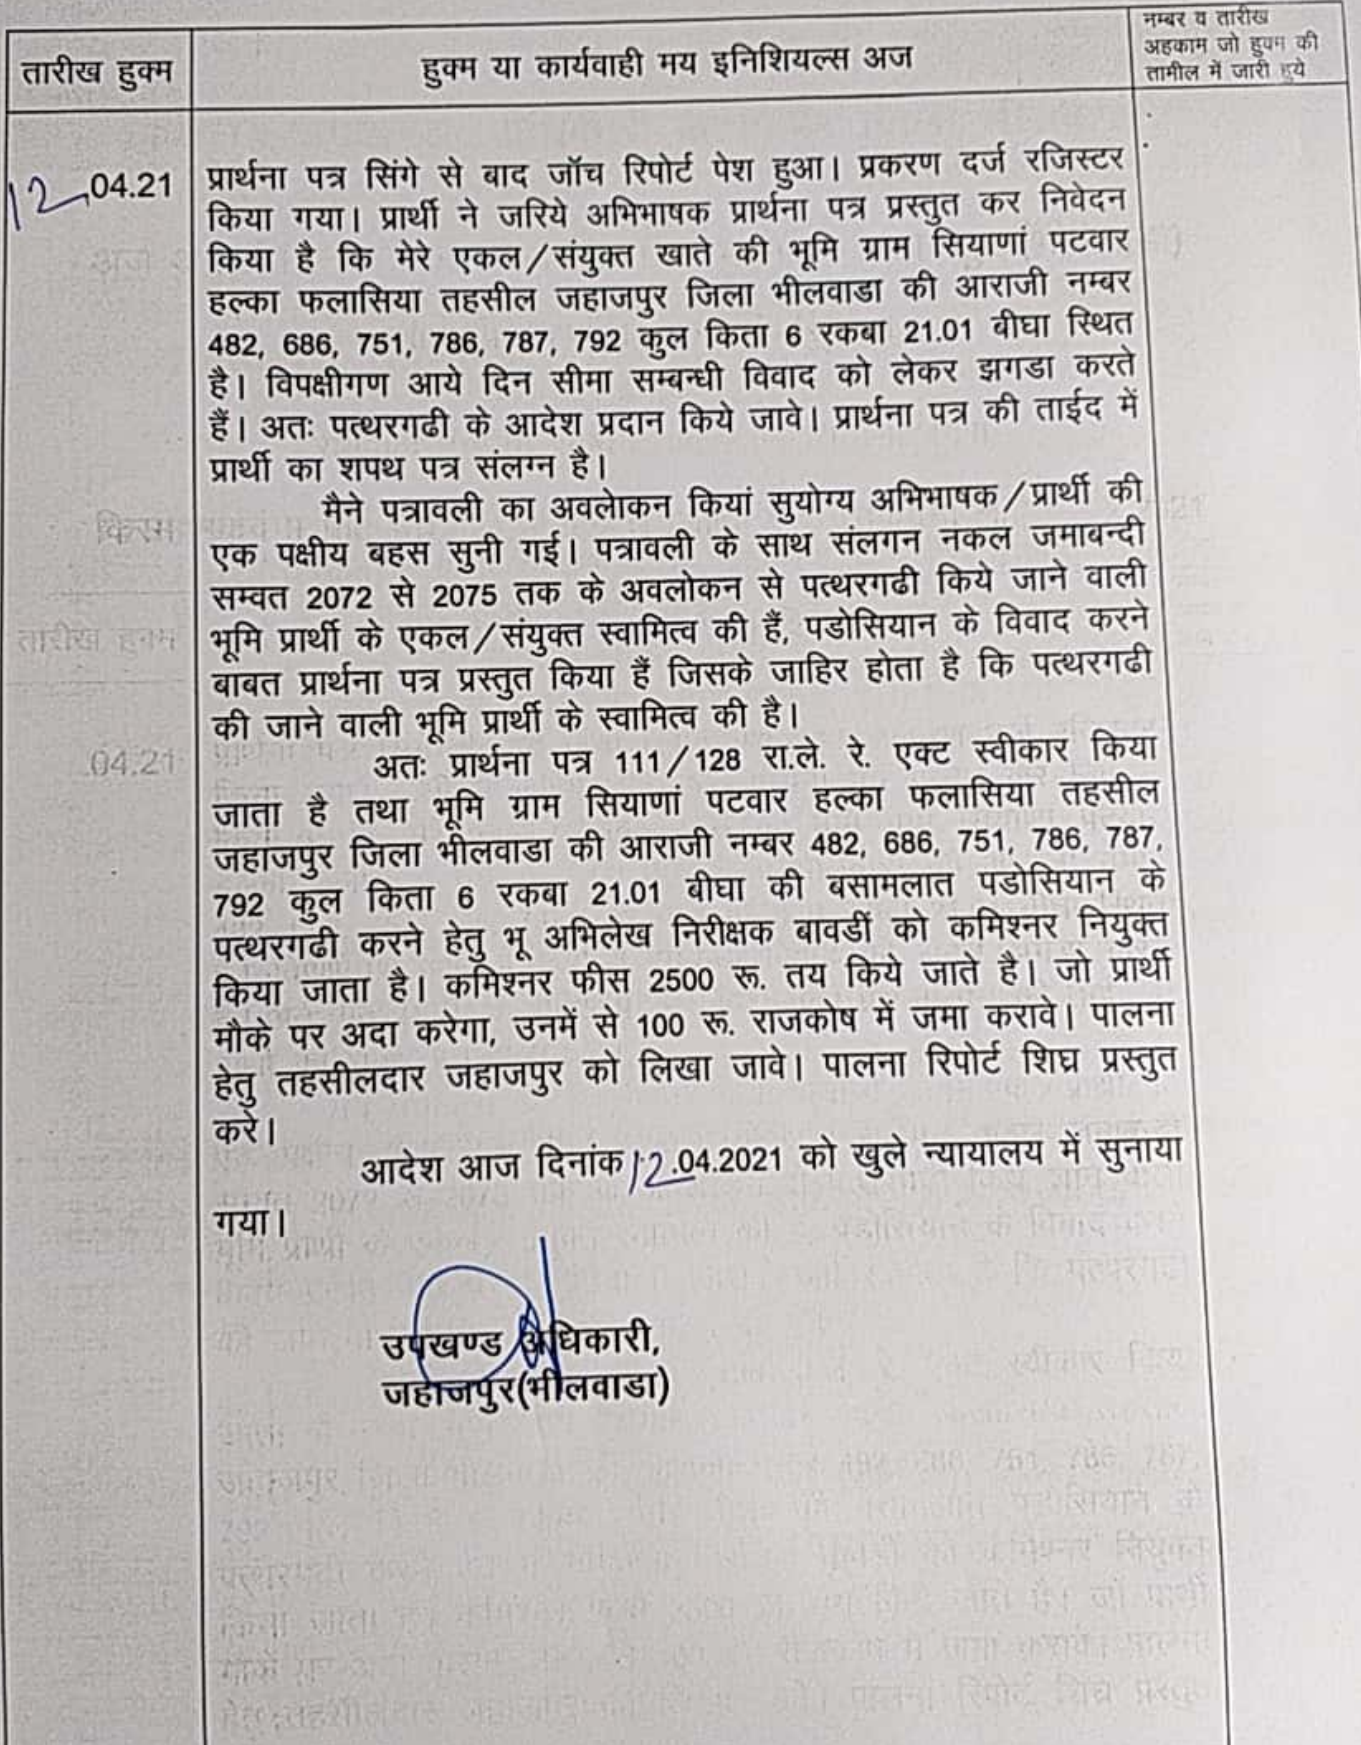 तारीख हुक्म
हुक्म या कार्यवाही मय इनिशियल्स अज
नम्बर व तारीख
अहकाम जो हुक्म की
तामील में जारी हुये
12.04.21
प्रार्थना पत्र सिंगे से बाद जॉच रिपोर्ट पेश हुआ। प्रकरण दर्ज रजिस्टर
किया गया। प्रार्थी ने जरिये अभिभाषक प्रार्थना पत्र प्रस्तुत कर निवेदन
किया है कि मेरे एकल/संयुक्त खाते की भूमि ग्राम सियाणां पटवार
हल्का फलासिया तहसील जहाजपुर जिला भीलवाडा की आराजी नम्बर
482, 686, 751, 786, 787, 792 कुल किता 6 रकबा 21.01 बीघा स्थित
है। विपक्षीगण आये दिन सीमा सम्बन्धी विवाद को लेकर झगडा करते
हैं। अतः पत्थरगढी के आदेश प्रदान किये जावे। प्रार्थना पत्र की ताईद में
प्रार्थी का शपथ पत्र संलग्न है।
मैने पत्रावली का अवलोकन कियां सुयोग्य अभिभाषक/प्रार्थी की
एक पक्षीय बहस सुनी गई। पत्रावली के साथ संलगन नकल जमाबन्दी
सम्वत 2072 से 2075 तक के अवलोकन से पत्थरगढी किये जाने वाली
भूमि प्रार्थी के एकल/संयुक्त स्वामित्व की हैं, पडोसियान के विवाद करने
बाबत प्रार्थना पत्र प्रस्तुत किया हैं जिसके जाहिर होता है कि पत्थरगढी
की जाने वाली भूमि प्रार्थी के स्वामित्व की है।
अतः प्रार्थना पत्र 111/128 रा.ले. रे. एक्ट स्वीकार किया
जाता है तथा भूमि ग्राम सियाणां पटवार हल्का फलासिया तहसील
जहाजपुर जिला भीलवाडा की आराजी नम्बर 482, 686, 751, 786, 787,
792 कुल किता 6 रकबा 21.01 बीघा की बसामलात पडोसियान के
पत्थरगढी करने हेतु भू अभिलेख निरीक्षक बावडीं को कमिश्नर नियुक्त
किया जाता है। कमिश्नर फीस 2500 रू. तय किये जाते है। जो प्रार्थी
मौके पर अदा करेगा, उनमें से 100 रू. राजकोष में जमा करावे। पालना
हेतु तहसीलदार जहाजपुर को लिखा जावे। पालना रिपोर्ट शिघ्र प्रस्तुत
करे।
आदेश आज दिनांक 12.04.2021 को खुले न्यायालय में सुनाया
गया।
उपखण्ड अधिकारी,
जहाजपुर(भीलवाडा)